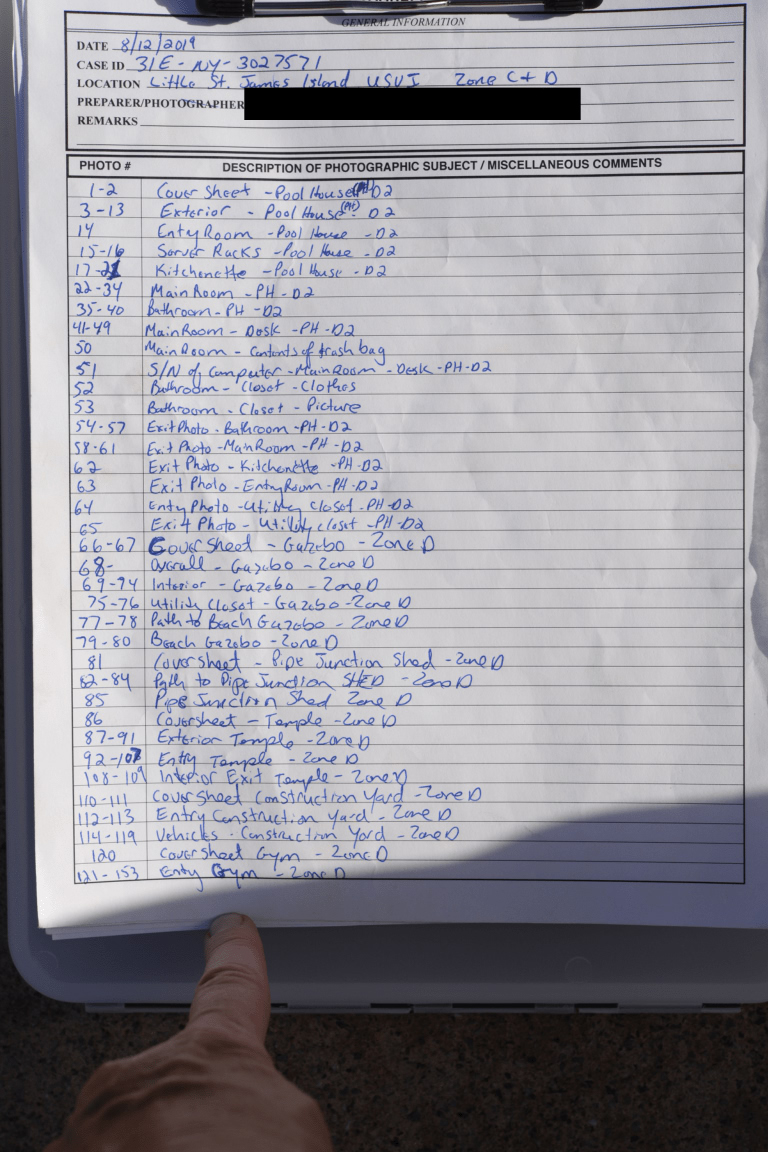 GENERAL INFORMATION
DATE 8/12/2019
CASE ID 31E-NY-3027571
LOCATION Little St. James Island USVI Zone C+D
PREPARER/PHOTOGRAPHER
REMARKS
PHOTO # DESCRIPTION OF PHOTOGRAPHIC SUBJECT / MISCELLANEOUS COMMENTS
1-2 Cover Sheet - Pool House (PH) D2
3-13 Exterior - Pool House (PH) - D2
14 Enty Room - Pool House - D2
15-16 Server Racks - Pool House - D2
17-21 Kitchenette - Pool House - D2
22-34 Main Room - PH - D2
35-40 Bathroom - PH - D2
41-49 Main Room - Desk - PH - D2
50 Main Room - contents of trash bag
51 S/N of computer - Main Room - Desk - PH-D2
52 Bathroom - Closet - Clothes
53 Bathroom - Closet - Picture
54-57 Exit Photo - Bathroom - PH-D2
58-61 Exit Photo - Main Room - PH-D2
62 Exit Photo - Kitchenette - PH-D2
63 Exit Photo - Entry Room - PH-D2
64 Enty Photo - Utility Closet - PH-D2
65 Exit Photo - Utility closet - PH-D2
66-67 Cover Sheet - Gazebo - Zone D
68- Overall - Gazebo - Zone D
69-74 Interior - Gazebo - Zone D
75-76 Utility Closet - Gazebo - Zone D
77-78 Path to Beach Gazebo - Zone D
79-80 Beach Gazebo - Zone D
81 Coversheet - Pipe Junction Shed - Zone D
82-84 Path to Pipe Junction SHED - Zone D
85 Pipe Junction Shed Zone D
86 Coversheet - Temple - Zone D
87-91 Exterior Temple - Zone D
92-107 Entry Temple - Zone D
108-109 Interior Exit Temple - Zone D
110-111 Cover Sheet Construction Yard - Zone D
112-113 Entry Construction Yard - Zone D
114-119 Vehicles - Construction Yard - Zone D
120 Cover Sheet Gym - Zone D
121-153 Enty Gym - Zone D